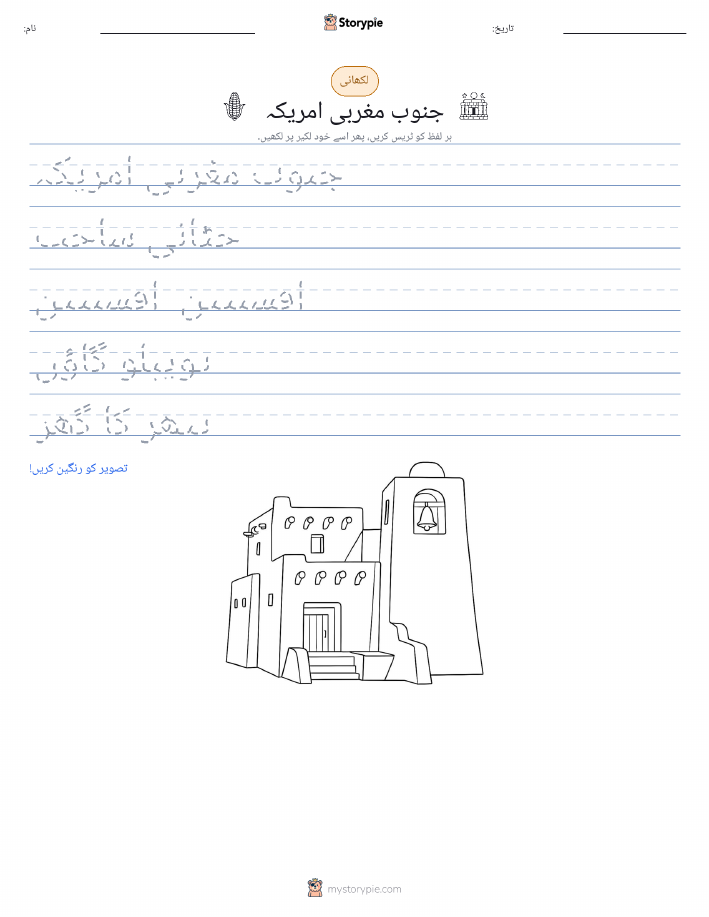 نام:
Storypie
تاریخ:
لکھائی
جنوب مغربی امریکہ
ہر لفظ کو ٹریس کریں، پھر اسے خود لکیر پر لکھیں۔
جنوب مغربی امریکہ
چٹانی ساخت
پویبلو گاؤں
پتھر کا گھر
تصویر کو رنگین کریں!
mystorypie.com